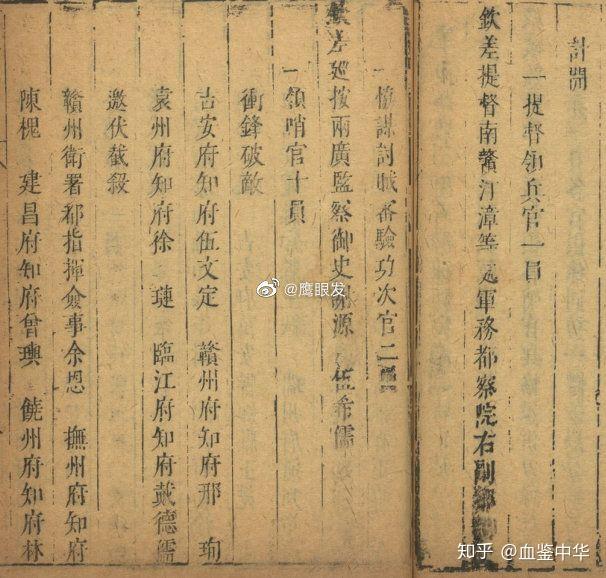 計開
一提督領兵官一員
欽差提督南贛汀漳等處軍務都察院右副都
協謀討賊審驗功次官二員
欽差巡按兩廣監察御史謝源 伍希儒
一領哨官十員
衝鋒破敵
吉安府知府伍文定 贛州府知府邢 珣
袁州府知府徐 璉 臨江府知府戴德孺
邀伏截殺
贛州衛署都指揮僉事余恩 撫州府知府
陳槐 建昌府知府曾璵 饒州府知府林
@鹰眼发
知乎 @血鉴中华